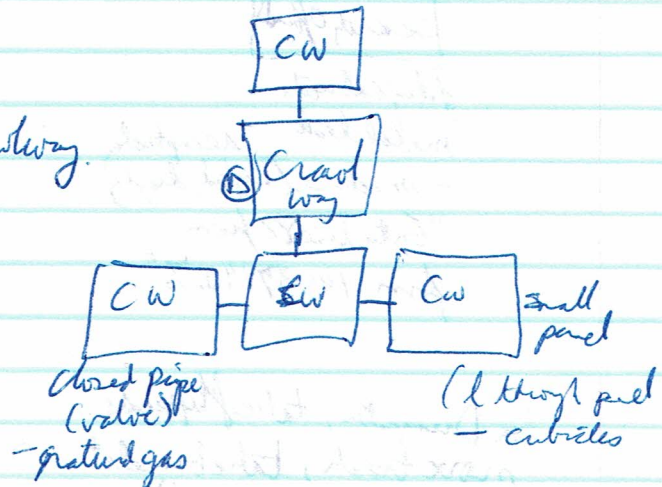 CW
Crawl
way
CW CW CW
small
panel
closed pipe
(valve)
- natural gas
through panel
- cubicles